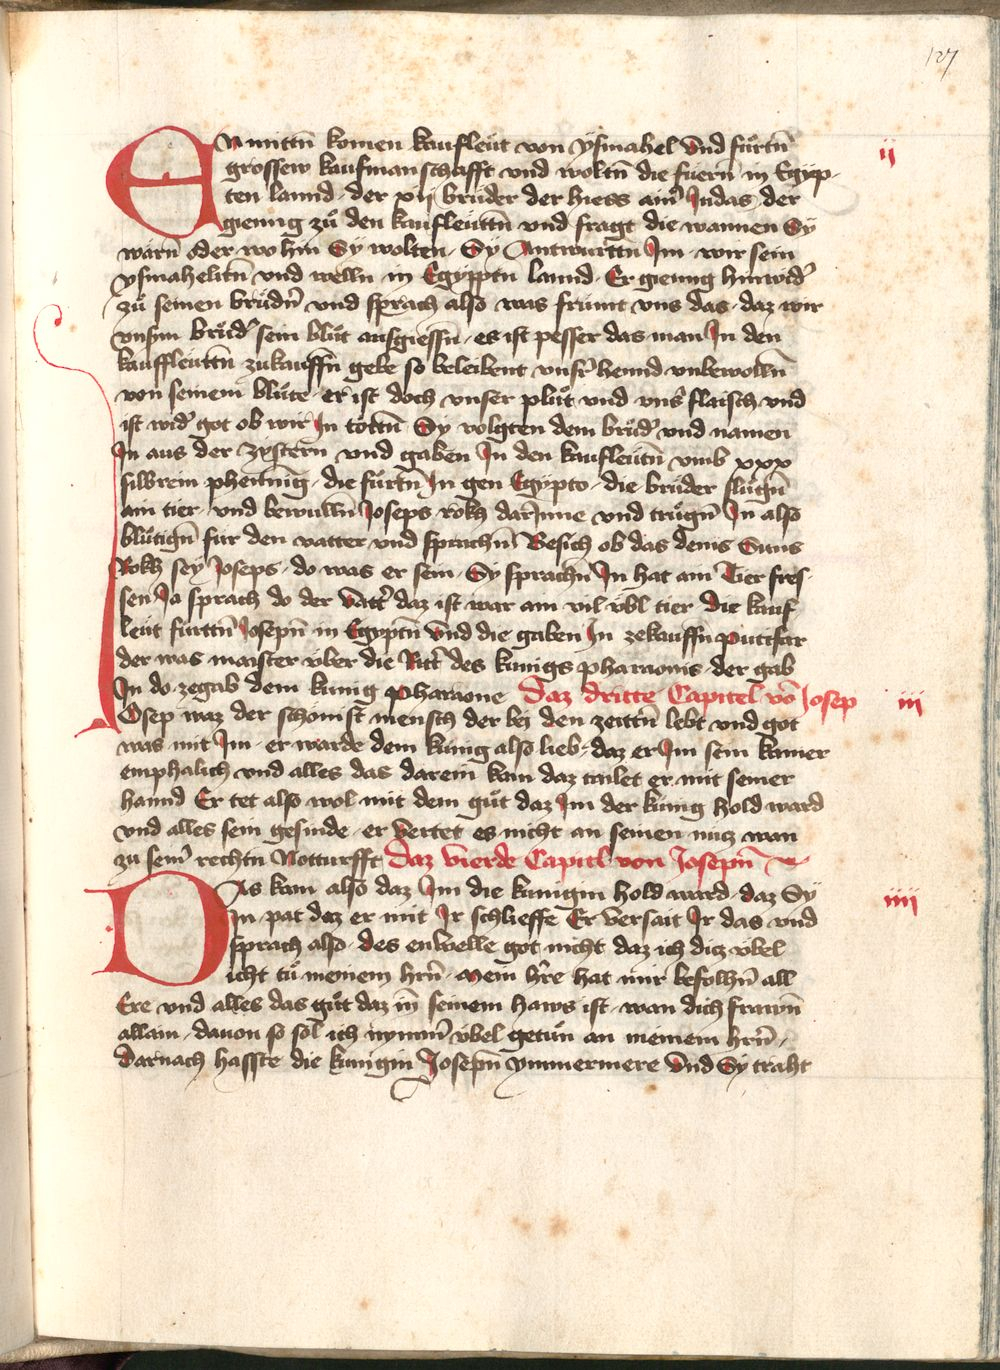 127
EN mittn̄ komen kaufleut von ysmahel vnd fuͦrtn̄ ij
grossew kaufmanschafft vnd woltn̄ die fuern̄ in Egyp-
ten lannd · der xij bruder der hiess ainr̄ Iudas der
gienng zuͦ den kaufleuttn̄ vnd fragt die wannen Sy
warn̄ oder wo hin Sy wolten · Sy Antwurttn̄ Im · wir sein
ysmahelitn̄ vnd welln in Egypptn lannd · Er gienng hinwid̄
zuͦ seinen bruͦdn̄ vnd sprach also was frumt vns das · daz wir
vnsm bruͦd̄ sein bluͦt ausgiessn̄ · es ist pesser das man In den
kauffleuttn̄ zukauffn̄ gebe so beleibent vnsr̄ hennd vnbewolln̄
von seinem bluͦte · er ist doch vnser pluͦt vnd vnsr̄ flaisch vnd
ist wid̄ got ob wir In toͤttn̄ Sy volgten dem bruͦd̄ vnd namen
In aus der zystern̄ vnd gaben In den kaufleutn̄ vmb xxx
silbrein phenning · die fuͦrtn̄ In gen Egypto · die bruͦder sluͦgn̄
ain tier · vnd bewulln̄ Joseps rokh darInne vnd truͦgn̄ In also
bluͦtign̄ fur den vatter vnd sprachn̄ Besich ob das deins Suns
Rokh sey Joseps · do was er sein · Sy sprachn̄ In hat ain Tier fres-
sen Ja sprach do der vattr̄ daz ist war ain vil vbl tier die kauf
leut furttn̄ Josepn̄ in Egyptn̄ vnd die gaben In zekauffn putifar
der was maister vber die Rittr̄ des kunigs pharaonis · der gab
In do zegab dem kunig pharaone Daz dritte Capitel vō Josep iii
JOsep waz der schonist mensch der bey den zeittn̄ lebt vnd got
was mit Im · er warde dem kunig also lieb · daz er Im sein kamer
emphalich vnd alles das darein kam daz tailet er mit seiner
hannd Er tet also wol mit dem guͦt daz Im der kunig hold ward
vnd alles sein gesinde · er vertet es nicht an seinen nutz wan
zu seinr̄ rechtn Notturfft Daz vierde Capitl von Josepn̄
DAs kam also daz Im die kunigin hold ward · daz Sy iiii
In pat daz er mit Ir schlieffe Er versait Ir das vnd
sprach also · des enwelle got nicht daz ich ditz vbel
icht tuͦ meinem hrn̄ · mein hr̄e hat mir befolhn̄ all
Ere vnd alles das guͦt daz in̄ seinem haws ist · wan dich frawn̄
allain · dauon so sol ich nymm̄ vbel getuͦn an meinem hrn̄ ·
darnach hasste die kunigin Josepn̄ ymmermere vnd Sy traht